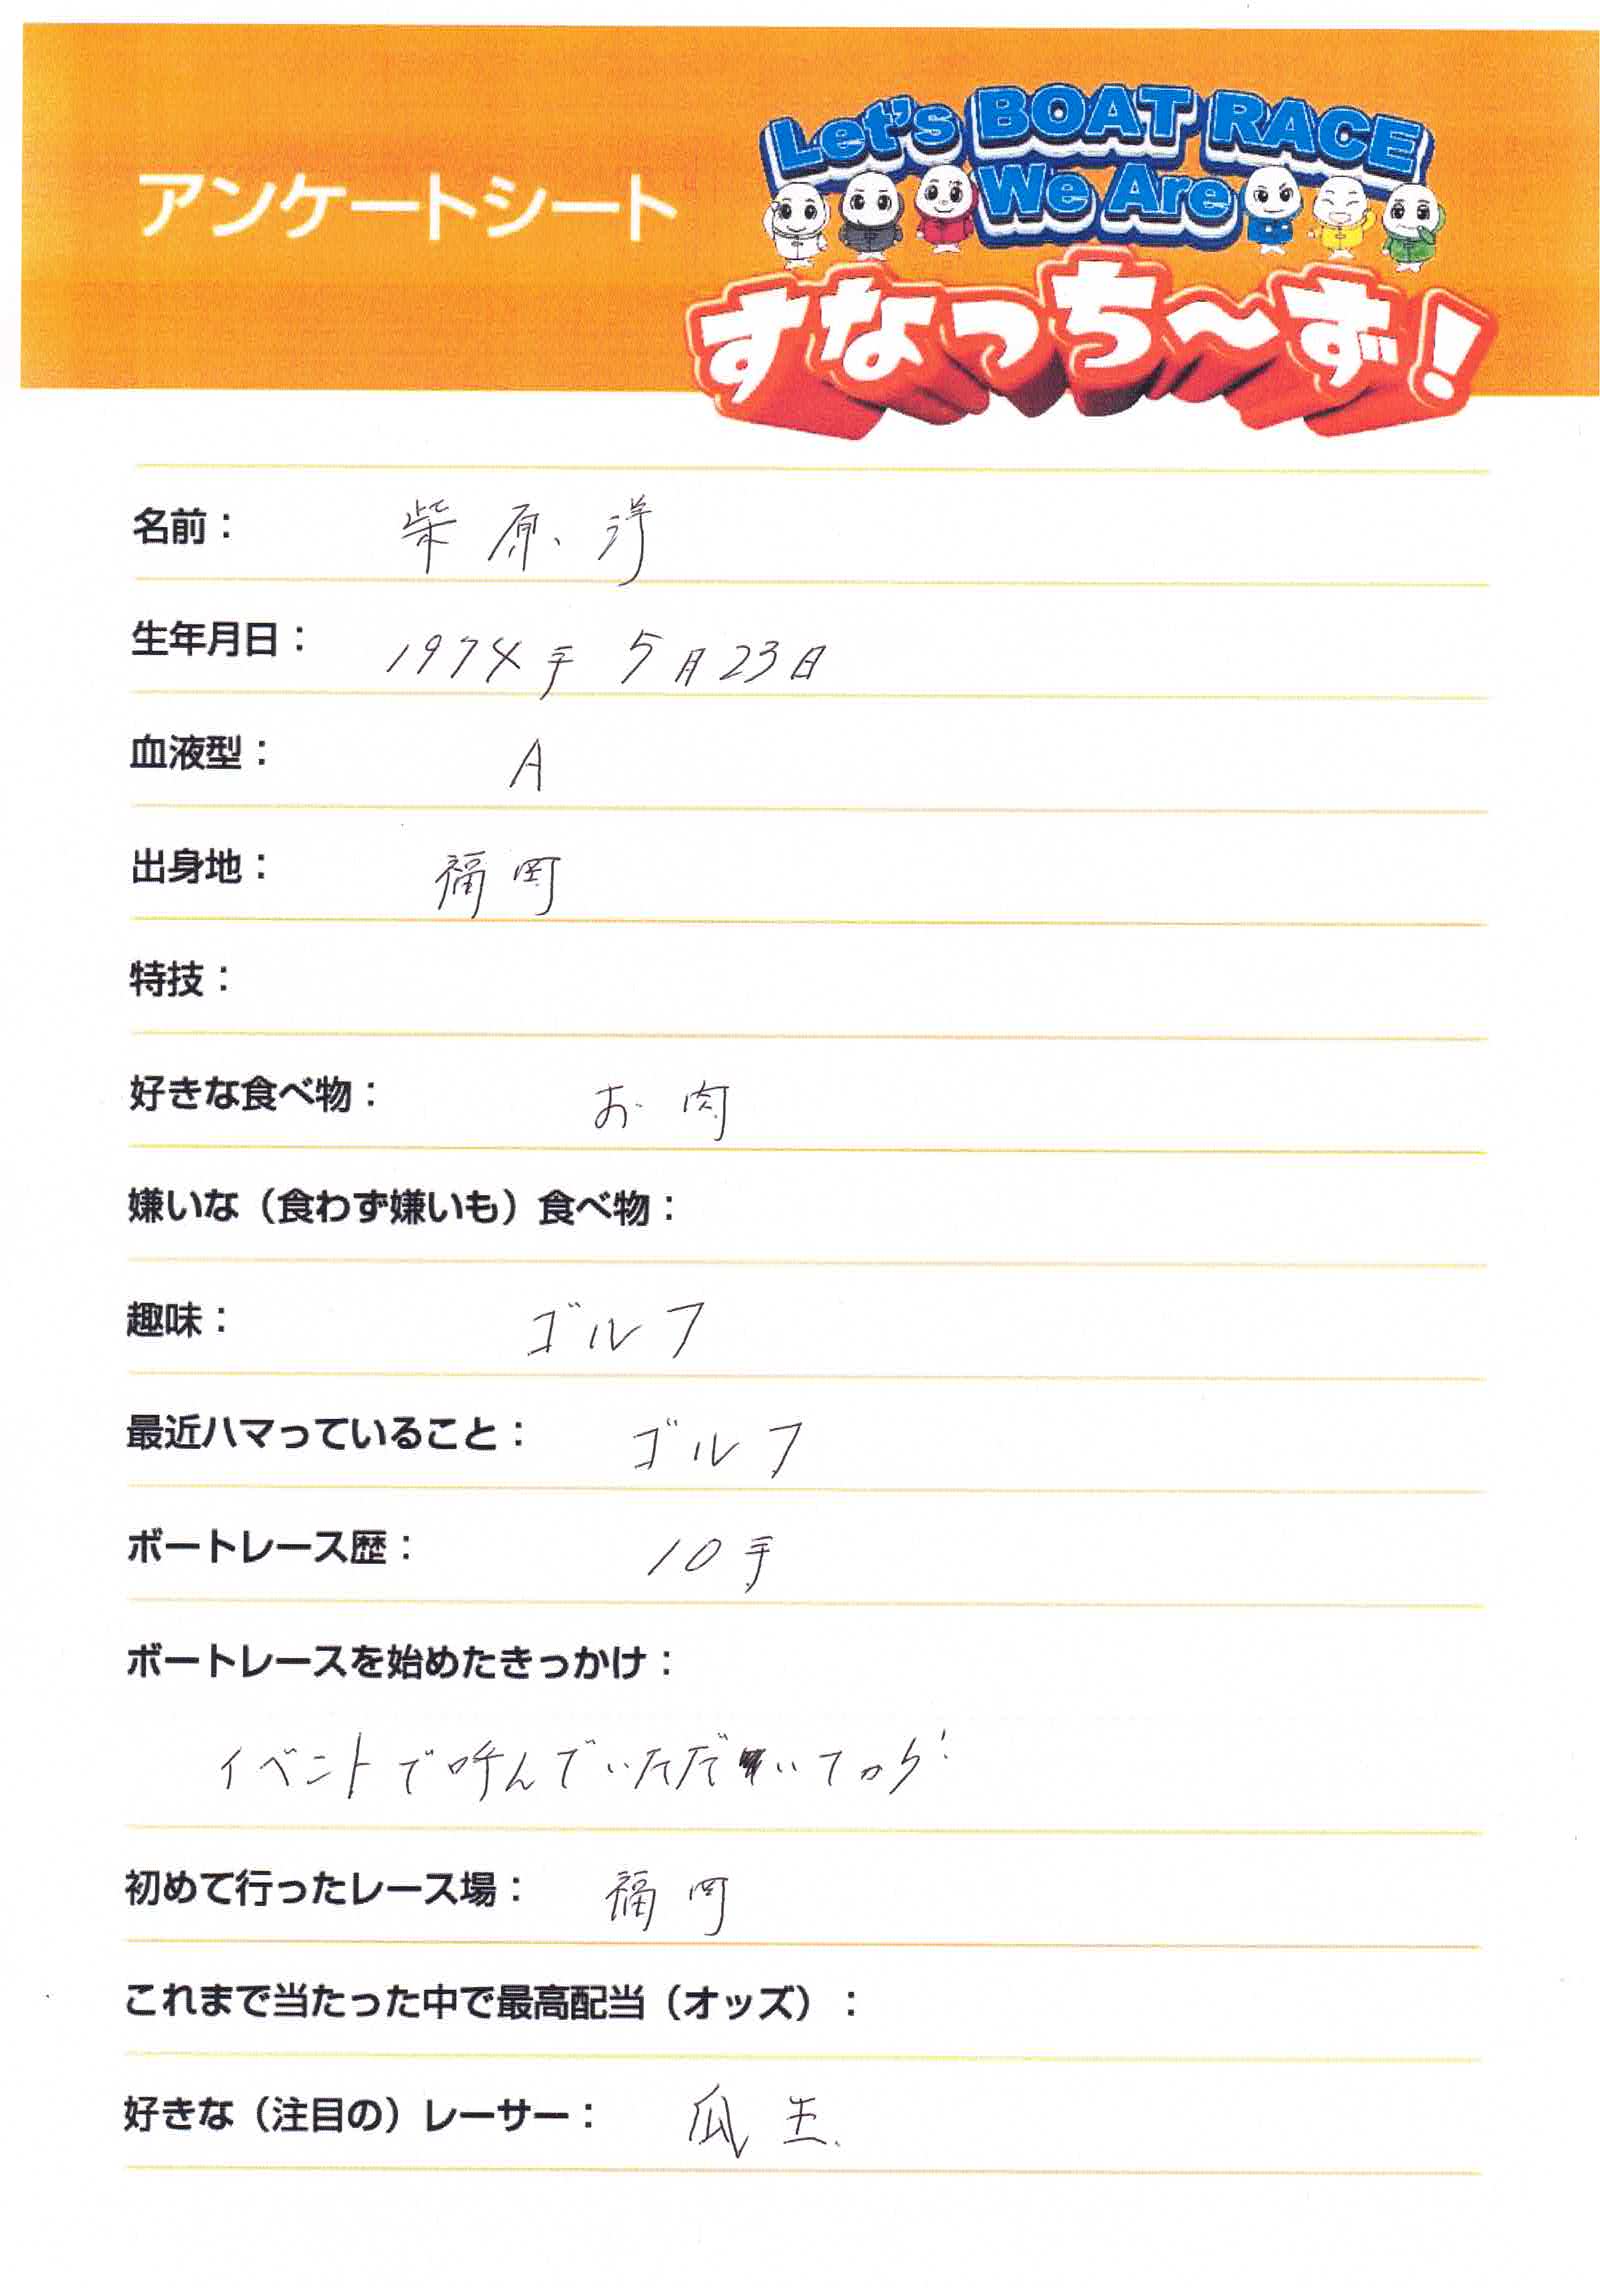 アンケートシート
Let's BOAT RACE
We Are
すなっち〜ず!
名前： 柴原 洋
生年月日： 1974年 5月23日
血液型： A
出身地： 福岡
特技：
好きな食べ物： お肉
嫌いな（食わず嫌いも）食べ物：
趣味： ゴルフ
最近ハマっていること： ゴルフ
ボートレース歴： 10年
ボートレースを始めたきっかけ：
イベントで呼んでいただいてから!
初めて行ったレース場： 福岡
これまで当たった中で最高配当（オッズ）：
好きな（注目の）レーサー： 瓜生